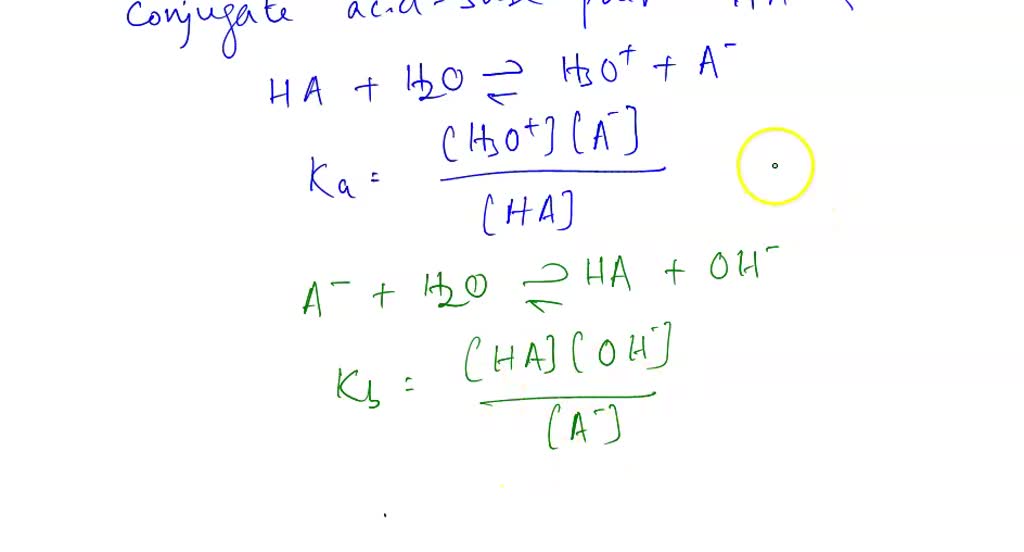 Conjugate acid-base pair HA
HA + H₂O ⇌ H₃O⁺ + A⁻
Ka = [H₃O⁺][A⁻] / [HA]
A⁻ + H₂O ⇌ HA + OH⁻
Kb = [HA][OH⁻] / [A⁻]